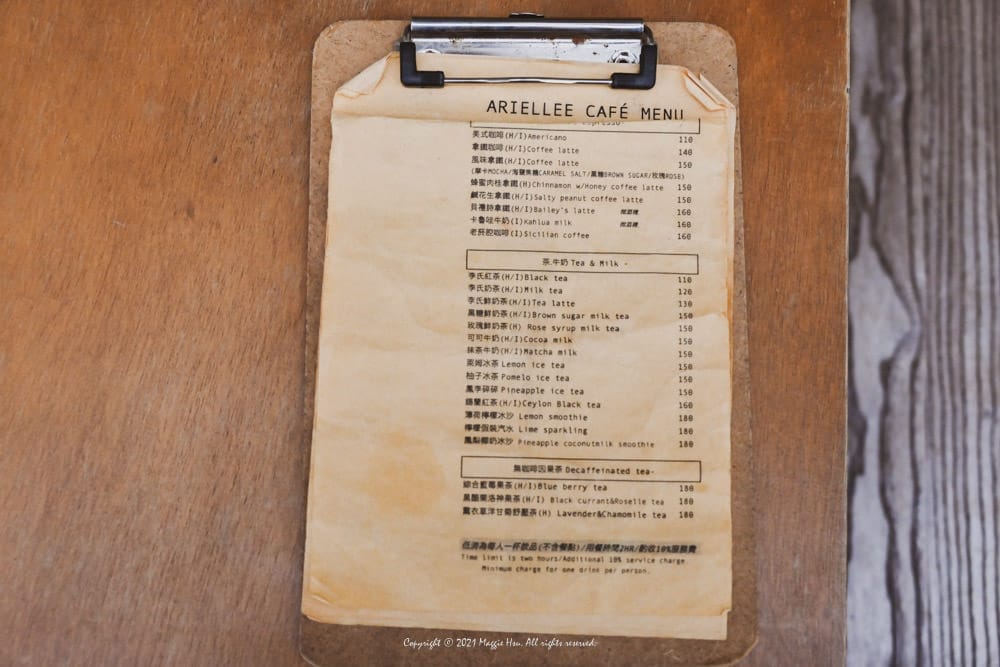 ARIELLEE CAFÉ MENU
美式咖啡(H/I)Americano 110
拿鐵咖啡(H/I)Coffee latte 140
風味拿鐵(H/I)Coffee latte 150
(摩卡MOCHA/海鹽焦糖CARAMEL SALT/黑糖BROWN SUGAR/玫瑰ROSE)
蜂蜜肉桂拿鐵(H)Chinnamon w/Honey coffee latte 150
鹹花生拿鐵(H/I)Salty peanut coffee latte 150
貝禮詩拿鐵(H/I)Bailey's latte 微酒精 160
卡魯哇牛奶(I)Kahlua milk 微酒精 160
西西里咖啡(I)Sicilian coffee 160
茶.牛奶 Tea & Milk -
李氏紅茶(H/I)Black tea 110
李氏奶茶(H/I)Milk tea 120
李氏鮮奶茶(H/I)Tea latte 130
黑糖鮮奶茶(H/I)Brown sugar milk tea 150
玫瑰鮮奶茶(H) Rose syrup milk tea 150
可可牛奶(H/I)Cocoa milk 150
抹茶牛奶(H/I)Matcha milk 150
萊姆冰茶 Lemon ice tea 150
柚子冰茶 Pomelo ice tea 150
鳳李碎碎 Pineapple ice tea 150
錫蘭紅茶(H/I)Ceylon Black tea 160
薄荷檸檬冰沙 Lemon smoothie 180
檸檬假裝汽水 Lime sparkling 180
鳳梨椰奶冰沙 Pineapple coconutmilk smoothie 180
無咖啡因果茶 Decaffeinated tea-
綜合藍莓果茶(H/I)Blue berry tea 180
黑醋栗洛神果茶(H/I) Black currant&Roselle tea 180
薰衣草洋甘菊舒壓茶(H) Lavender&Chamomile tea 180
低消為每人一杯飲品(不含餐點)/用餐時間2HR/酌收10%服務費
Time limit is two hours/Additional 10% service charge.
Minimum charge for one drink per person.
Copyright © 2021 Maggie Hsu. All rights reserved.